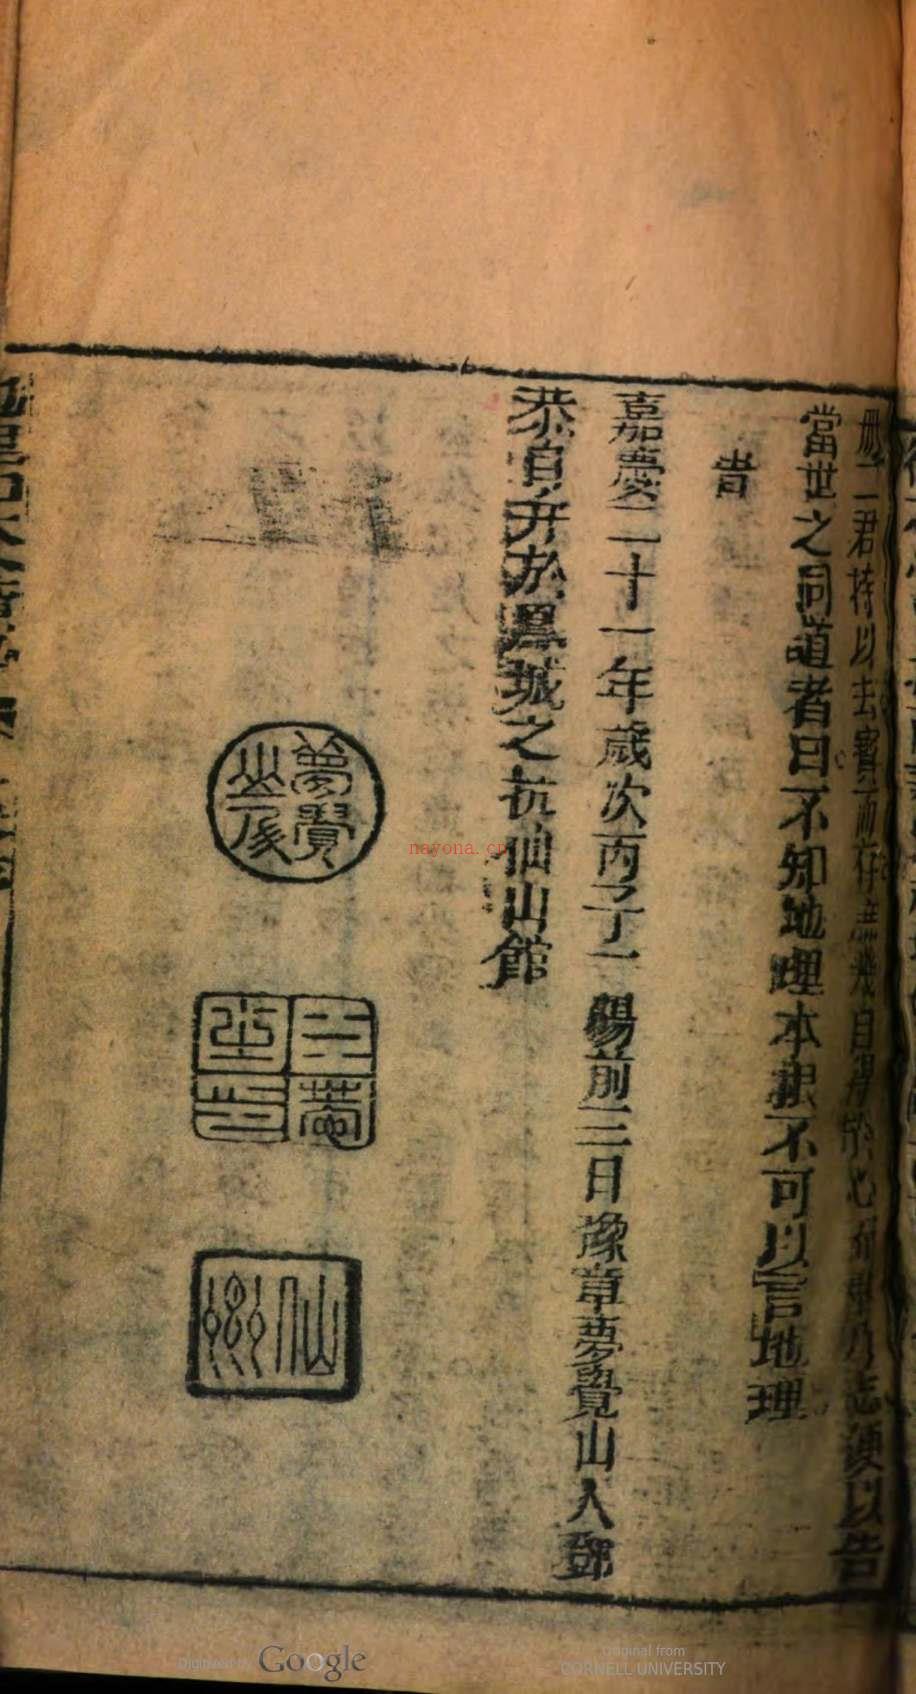 册二君持以去寳而存庶幾自得於心而
便以告
當世之同道者曰不知地理本根不可以言地理
旹
嘉慶二十一年歲次丙子一陽前三日豫章夢覺山人鄧
恭自弁於鳳城之抗仙山館
夢覺山人
仙
nayona.cn
Digitized by Google
Original from
CORNELL UNIVERSITY